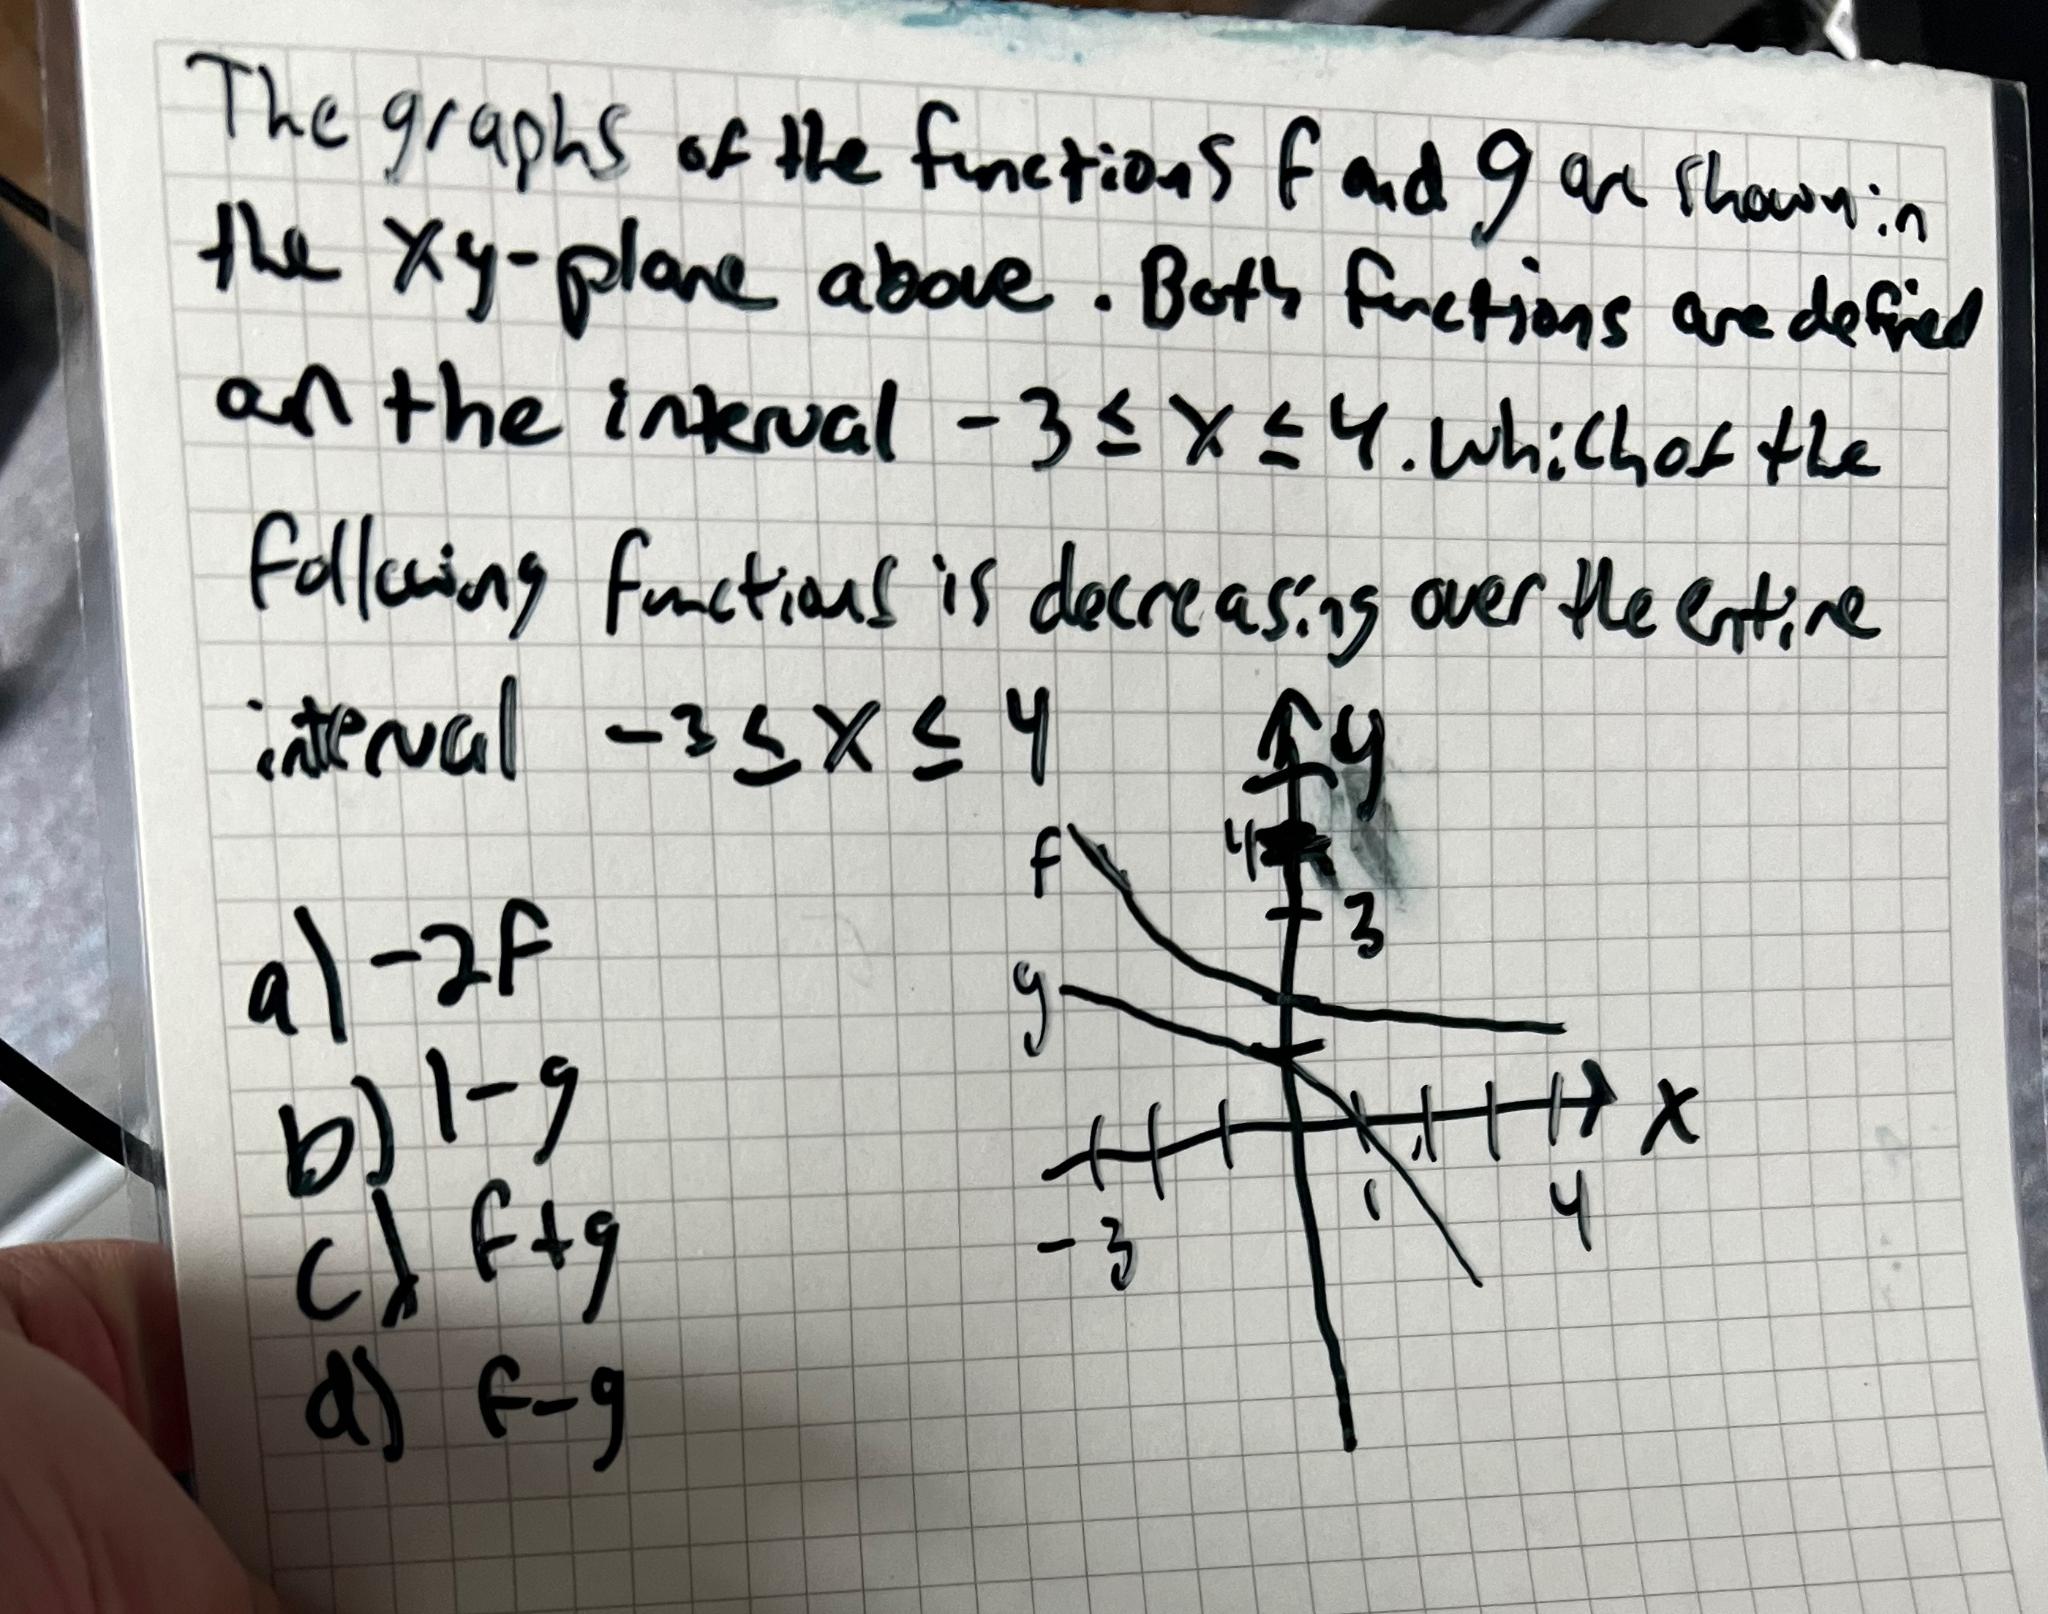 The graphs of the functions f and g are shown in
the xy-plane above. Both functions are defined
on the interval -3 ≤ x ≤ 4. Which of the
following functions is decreasing over the entire
interval -3 ≤ x ≤ 4
y
f
4
3
a) -2f
g
b) 1-g
x
1
4
c) f+g
-3
d) f-g